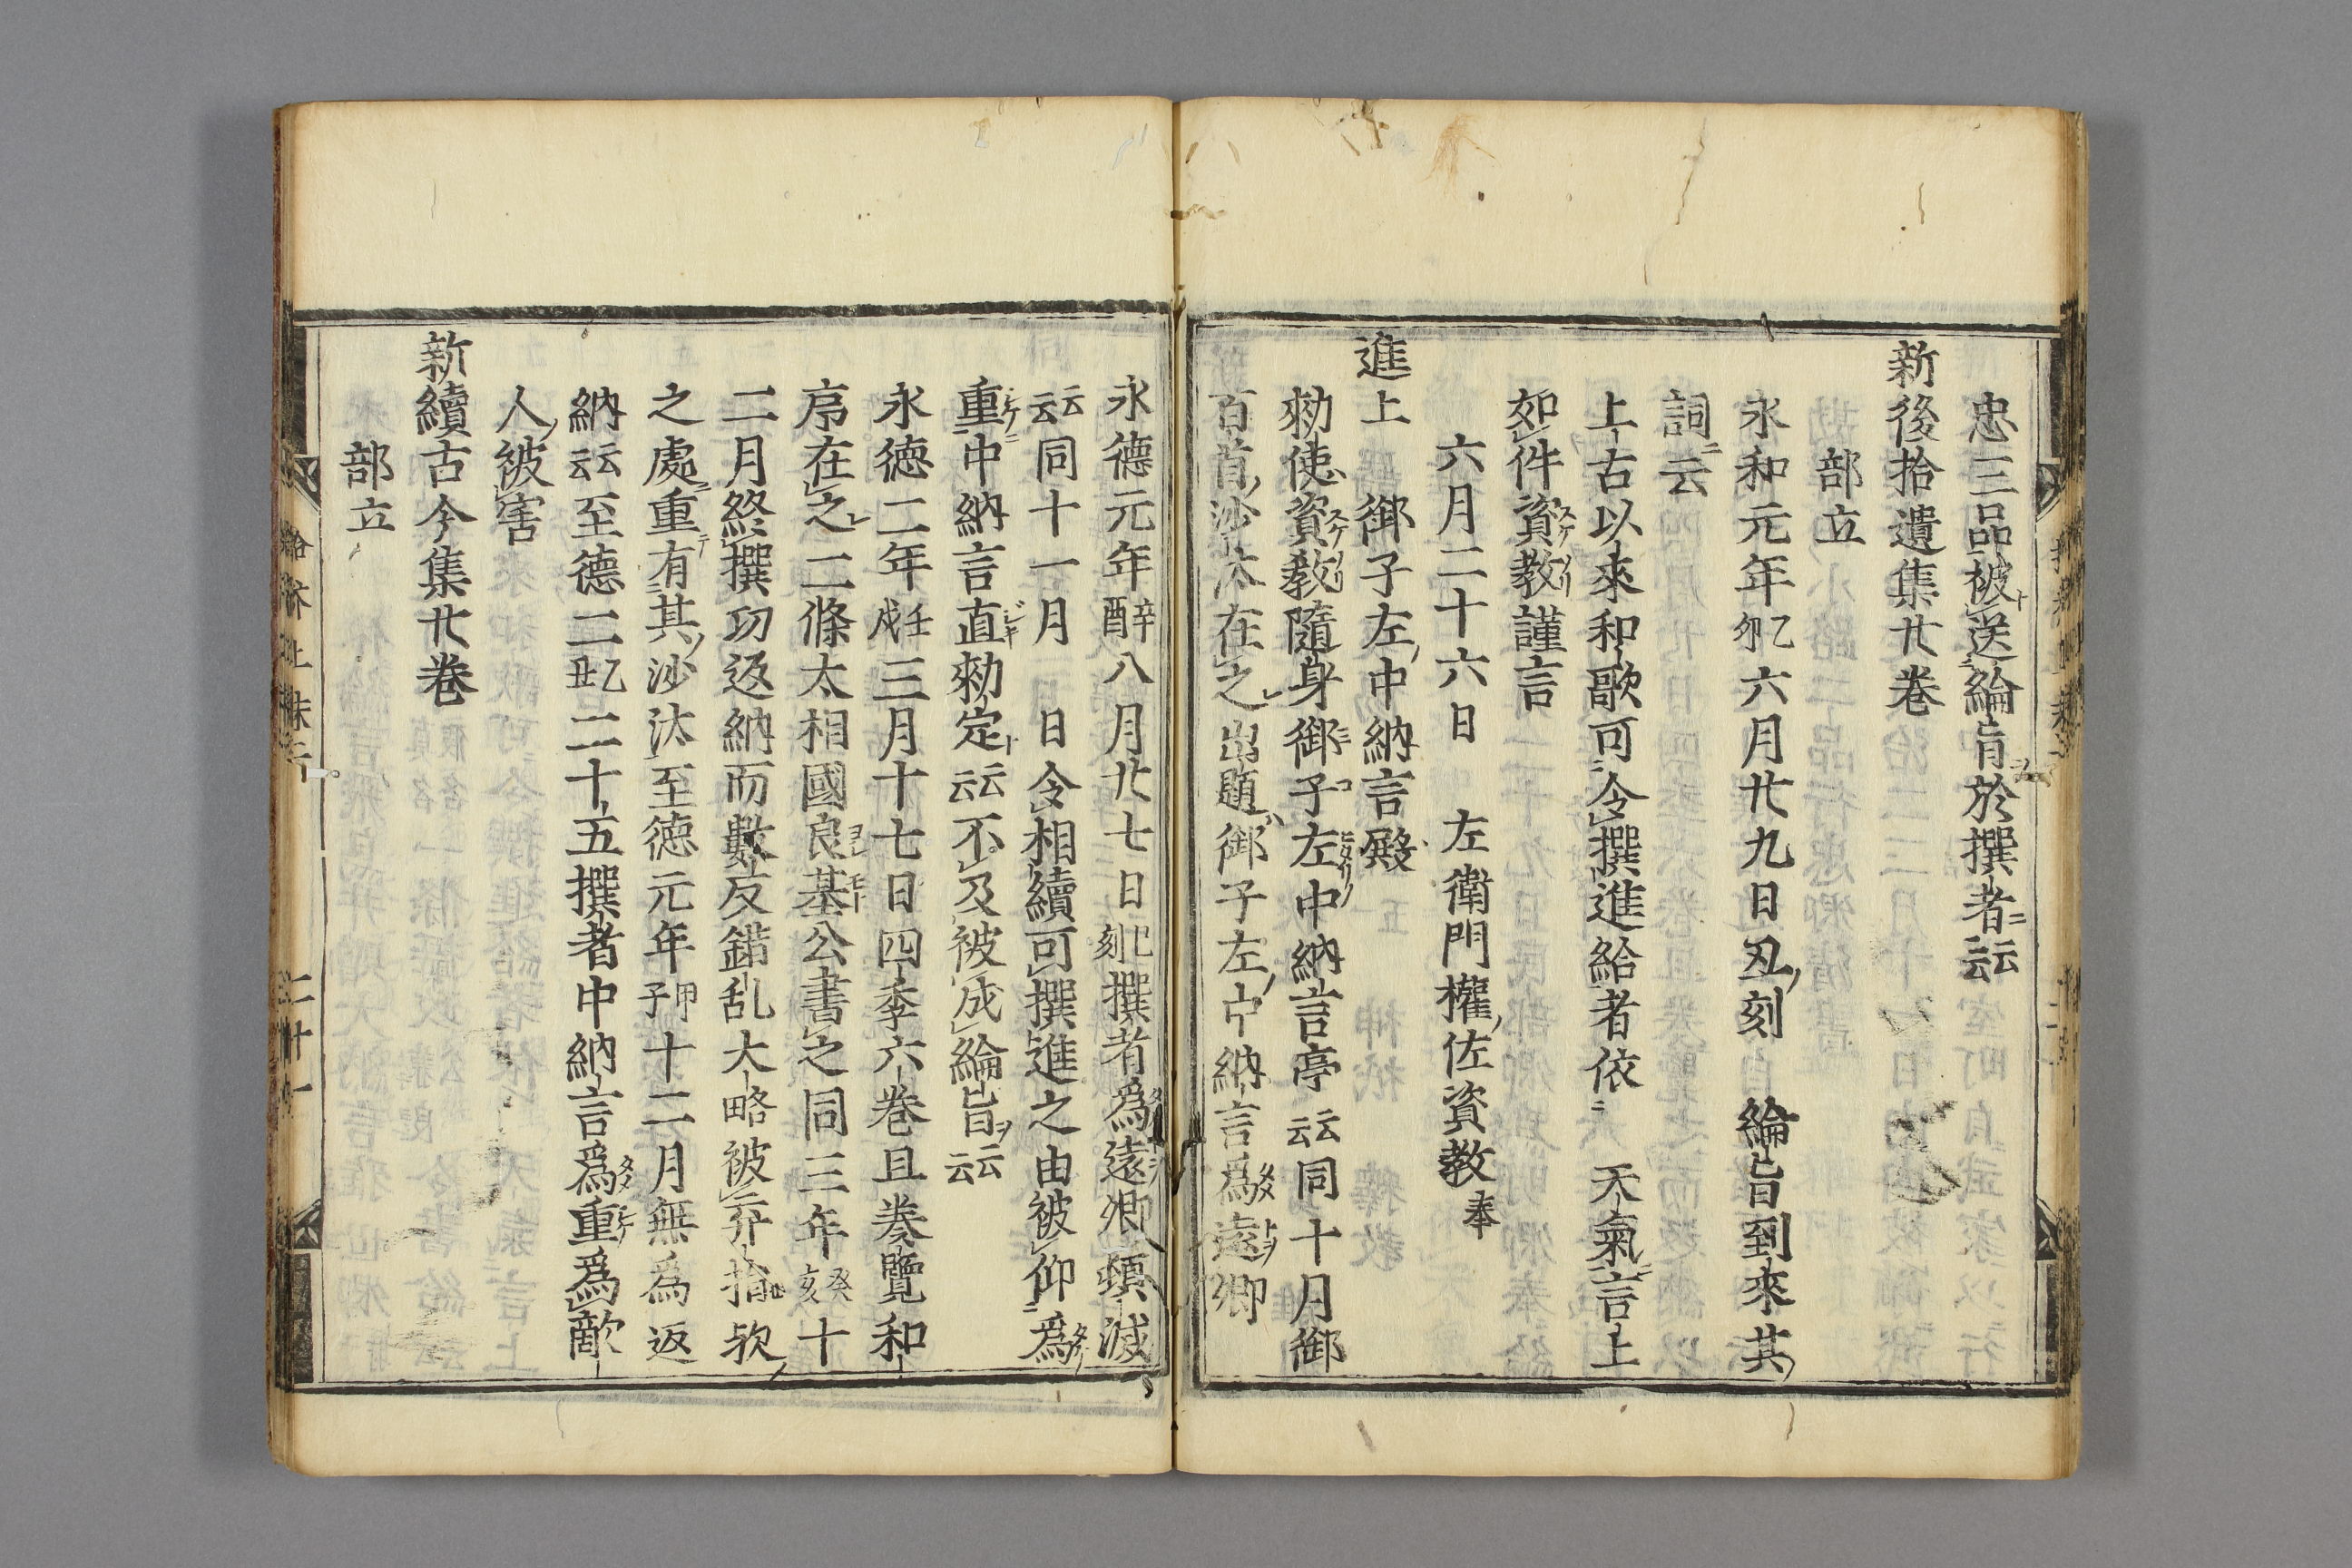 忠三品被送綸旨於撰者云云
新後拾遺集廿巻
部立
永和元年乙卯六月廿九日丑刻 綸旨到來其
詞云
上古以來和歌可令撰進給者依 天氣言上
如件資教謹言
六月二十六日 左衛門權佐資教奉
進上 御子左中納言殿
勅使資教隨身御子左中納言亭云云同十月御
百首沙汰在之出題御子左中納言爲遠卿
永德元年辛酉八月廿七日巳刻撰者爲遠卿頓滅
云云同十一月 日令相續可撰進之由被仰爲
重中納言直勅定云云不及被成綸旨云云
永德二年壬戌三月十七日四季六巻且奏覽和
序在之二條太相國良基公書之同三年癸亥十
二月終撰功返納而數反錯乱大略被弃捐欤
之處重有其沙汰至德元年甲子十二月無爲返
納云云至德二乙丑二十五撰者中納言爲重爲敵
人被害
新續古今集廿巻
部立
二十一